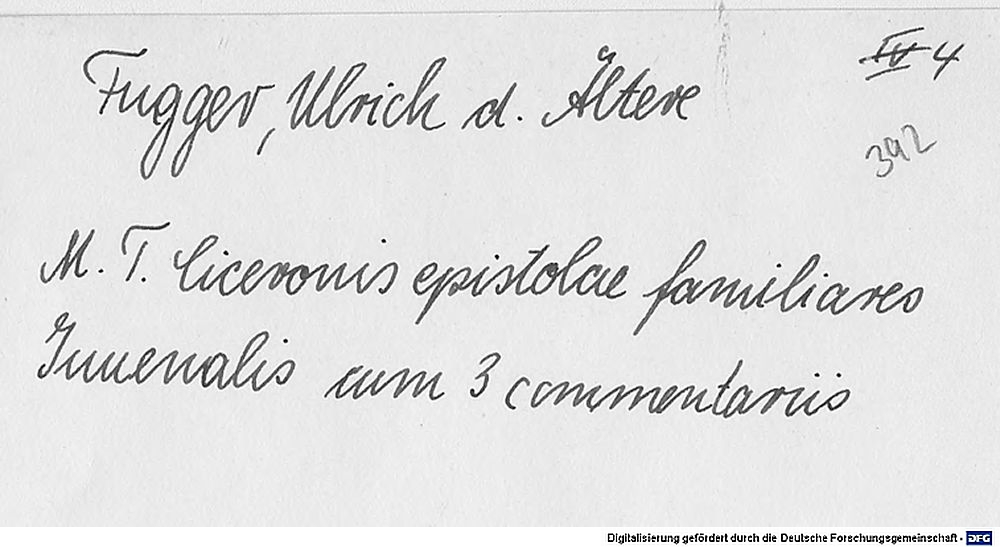 Fugger, Ulrich d. Ältere
IV 4
392
M. T. Ciceronis epistolae familiares
Iuuenalis cum 3 commentariis
Digitalisierung gefördert durch die Deutsche Forschungsgemeinschaft - DFG